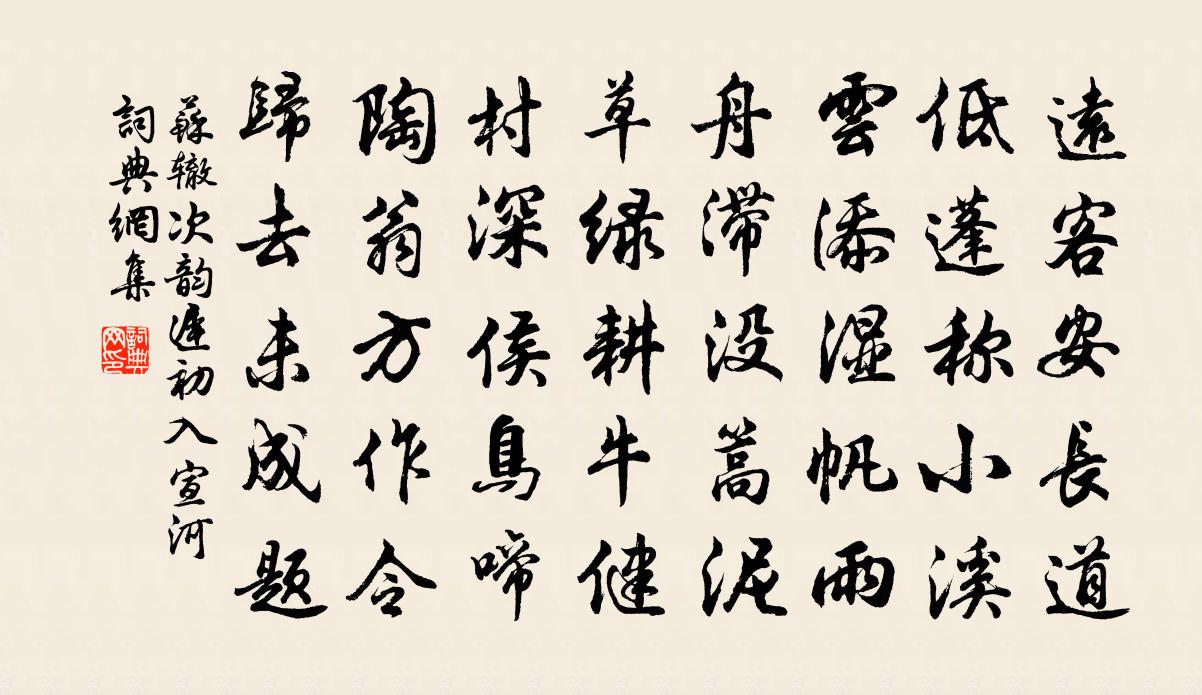 遠客安長道
低蓬称小溪
雲添湿帆雨
舟滞没篙泥
草绿耕牛健
村深侯鳥啼
陶翁方作令
歸去未成题
蘇辙次韵遲初入宣河
詞典網集
詞典网印